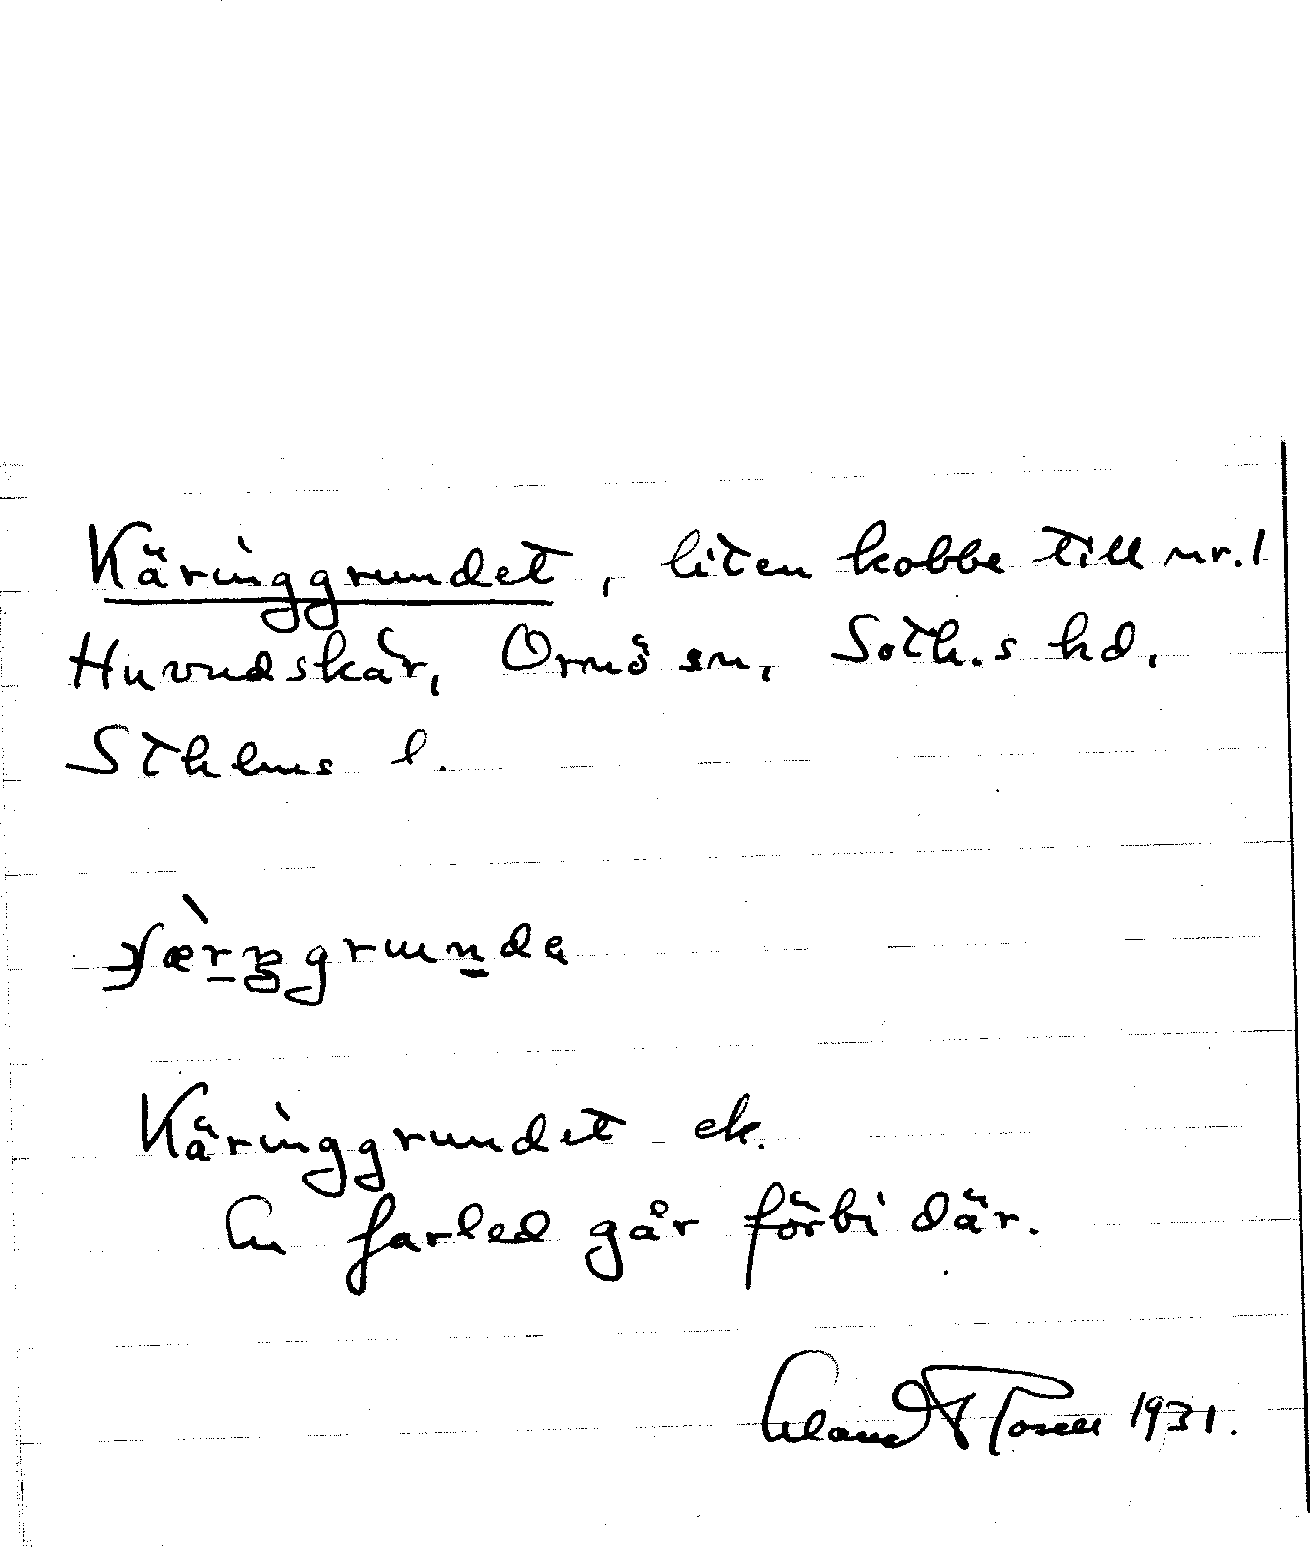 Käringgrundet, liten kobbe till nr. 1
Huvudskär, Ornö sn, Soth.s hd,
Sthlms l.
Käringgrundet ek.
En farled går förbi där.
1931.